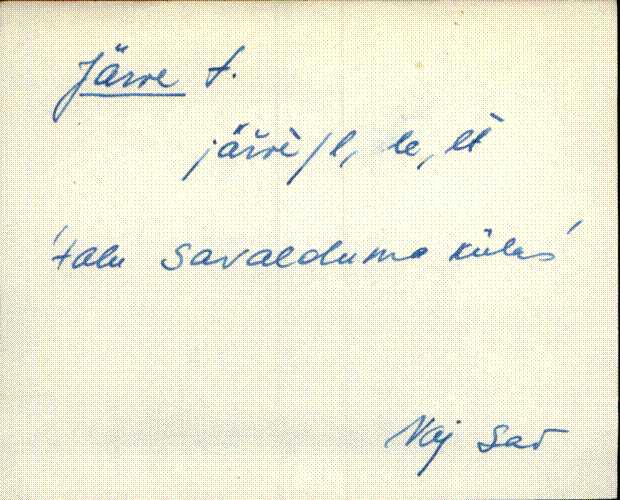 Järve t.
järvè̬/l, le, lt
'talu Savalduma külas'
Vaj Sav